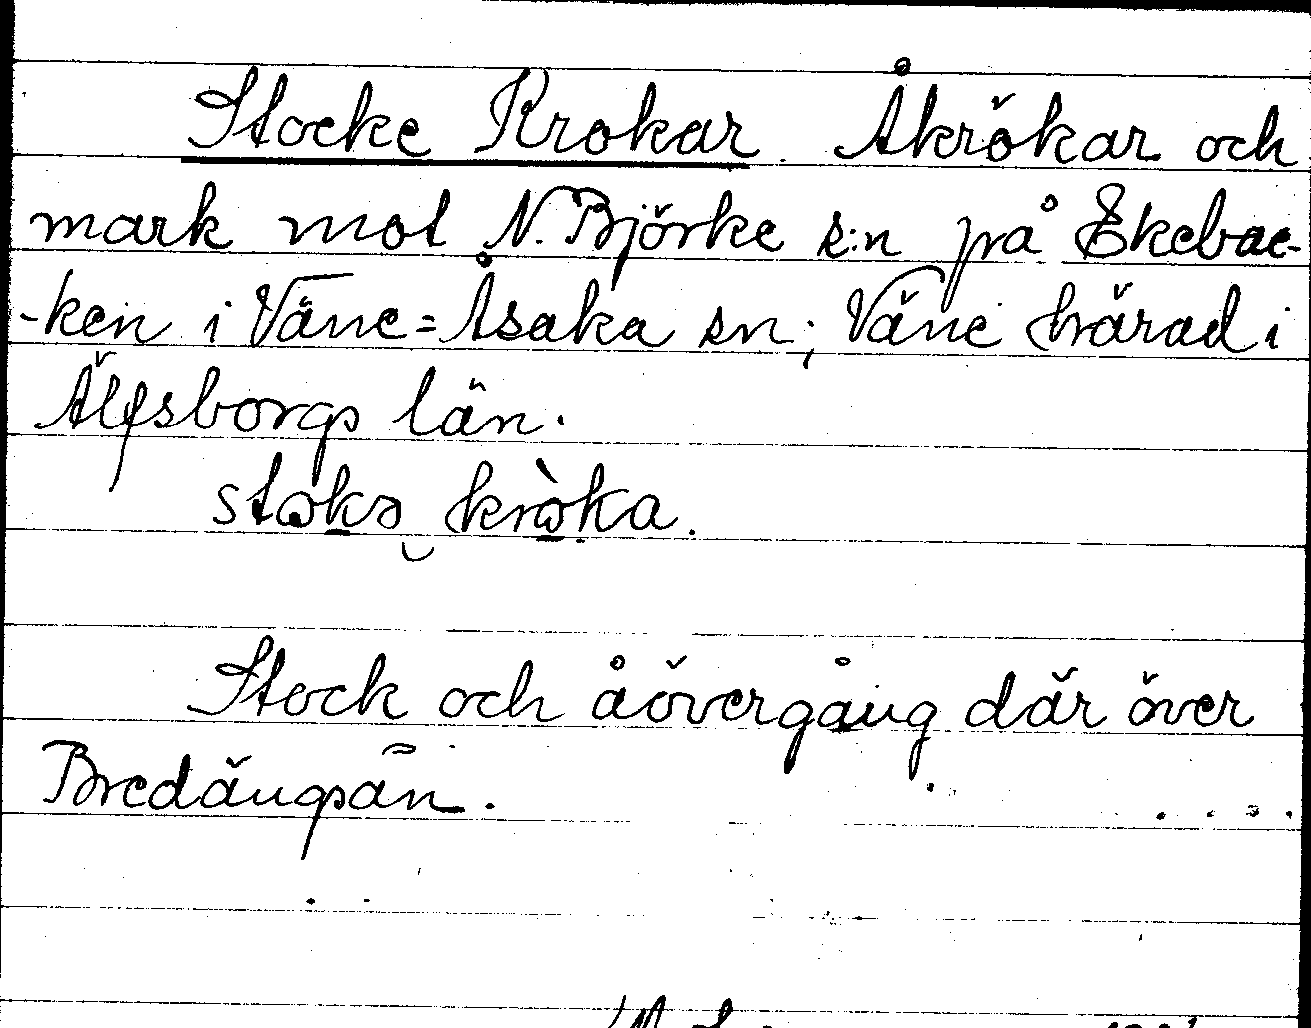 Stocke Krokar. Åkrökar och
mark mot N. Björke s:n på Ekebac-
-ken i Väne=Åsaka sn; Väne härad i
Älfsborgs län.
støkə krø̀ka.
Stock och åövergång där över
Bredängsån.